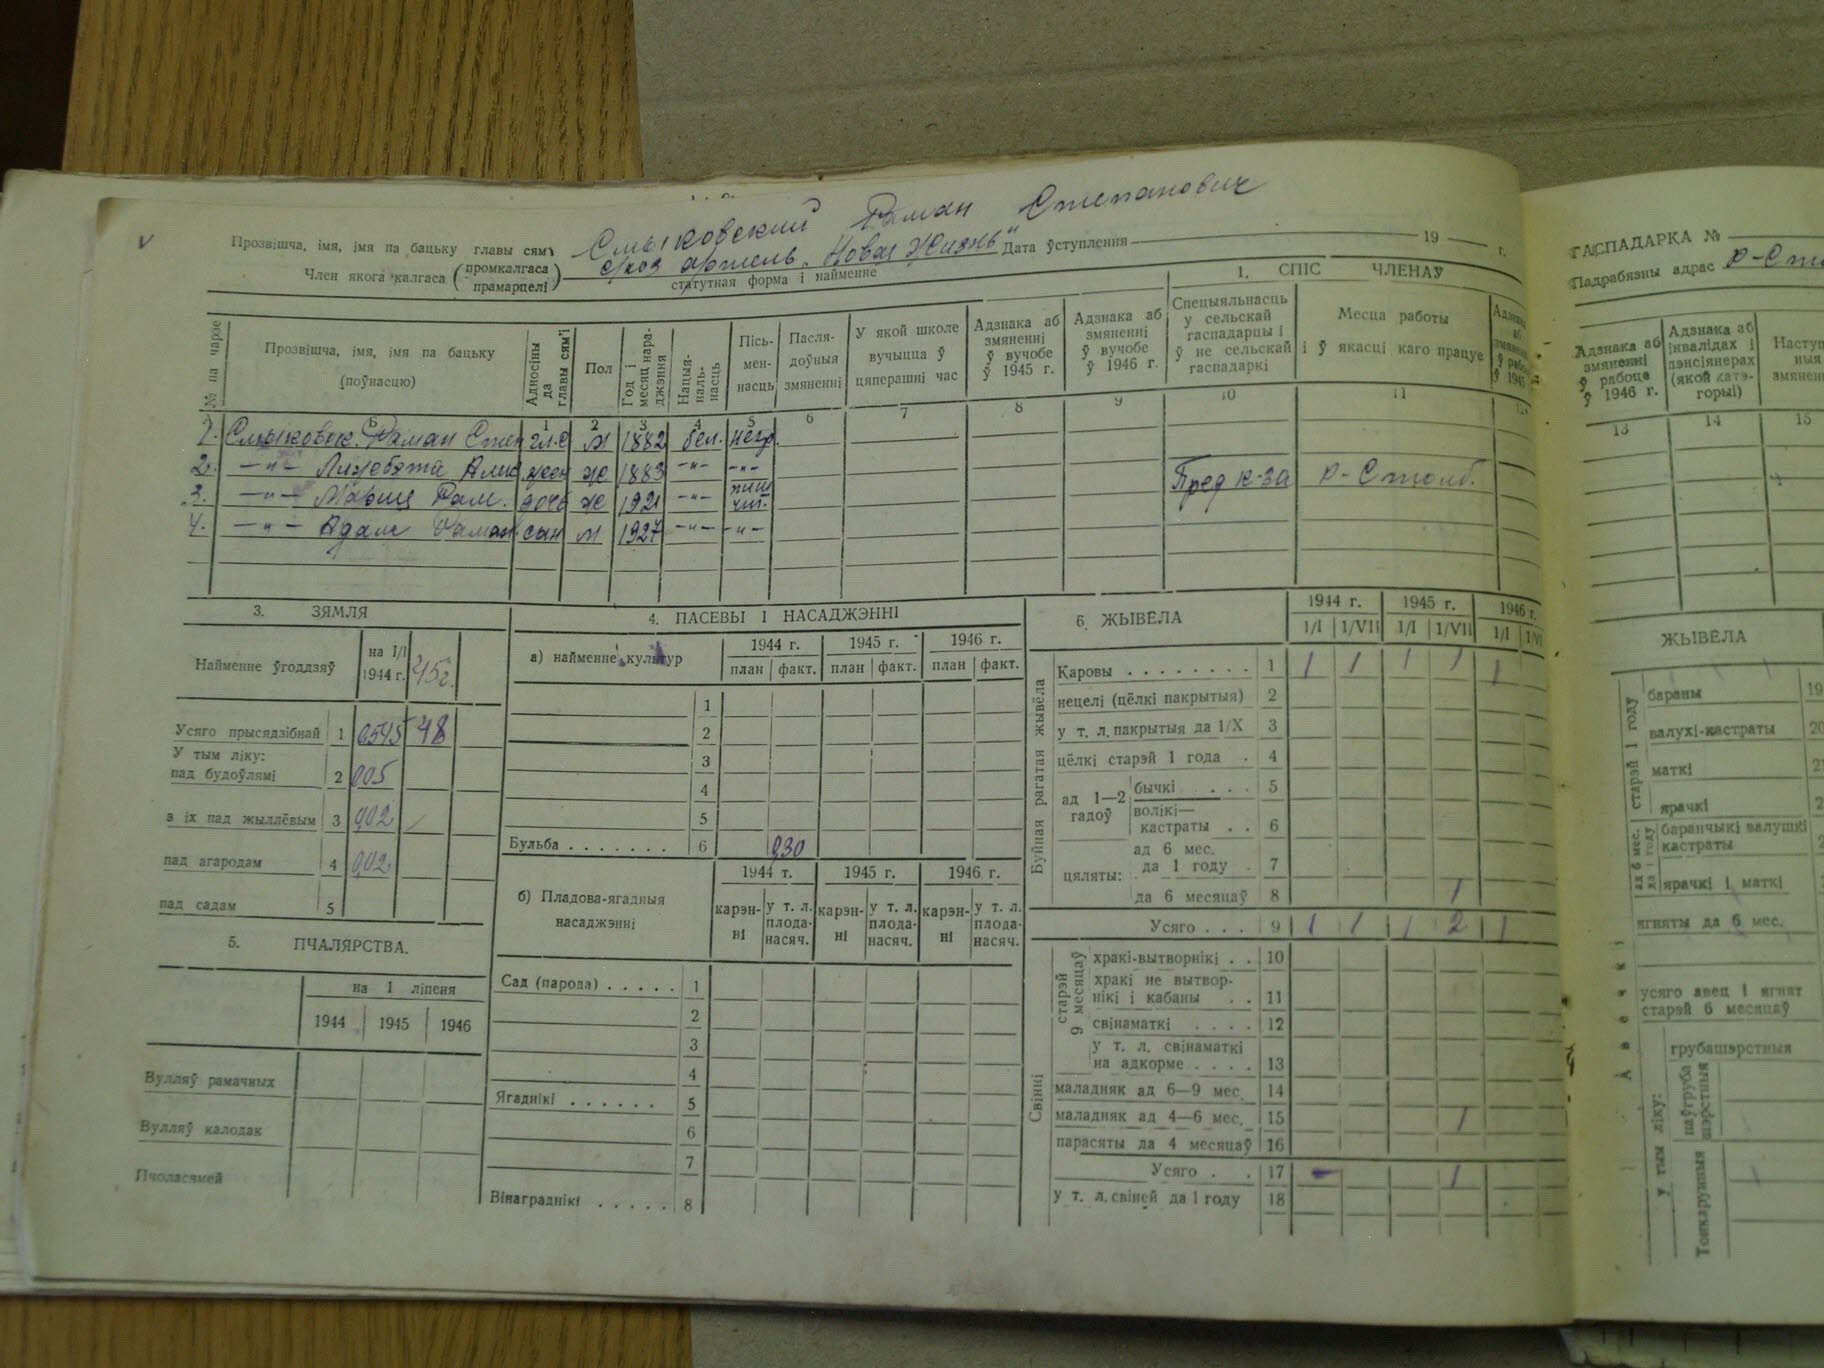 Прозвішча, імя, імя па бацьку главы сям'і Смыковский Раман Степанович
Член якога калгаса (промкалгаса прамарцелі) с/хоз артель „Новая Жизнь" Дата ўступлення 19 г.
статутная форма і найменне
1. СПІС ЧЛЕНАЎ
№ па чарзе
Прозвішча, імя, імя па бацьку (поўнасцю)
Адносіны да главы сям'і
Пол
Год і месяц нараджэння
Нацыянальнасць
Пісь-мен-насць
Пасля-доўныя змяненні
У якой школе вучыцца ў цяперашні час
Адзнака аб змяненні ў вучобе ў 1945 г.
Адзнака аб змяненні ў вучобе ў 1946 г.
Спецыяльнасць у сельскай гаспадарцы і ў не сельскай гаспадаркі
Месца работы і ў якасці каго працуе
Адзнака аб змяненні ў рабоце ў 1945
Б 1 2 3 4 5 6 7 8 9 10 11 12
1. Смыковск. Раман Степ гл.с м 1882 бел. негр
2. —"— жен ж 1883 —"— —"—
3. —"— Рам. дочь ж 1921 —"— пиш чит. Пред к-за Р-Столб.
4. —"— Адам Раман сын м 1927 —"— —"—
3. ЗЯМЛЯ
Найменне ўгоддзяў
на 1/I 1944 г. 45г.
Усяго прысядзібнай 1 0,545 48
У тым ліку:
пад будоўлямі 2 0,05
з іх пад жыллёвым 3 0,02
пад агародам 4 0,02
пад садам 5
5. ПЧАЛЯРСТВА.
на 1 ліпеня
1944 1945 1946
Вулляў рамачных
Вулляў калодак
Пчоласямей
4. ПАСЕВЫ І НАСАДЖЭННІ
а) найменне культур
1944 г. 1945 г. 1946 г.
план факт. план факт. план факт.
1
2
3
4
5
Бульба . . . . . . . 6 0,30
б) Пладова-ягадныя насаджэнні
1944 г. 1945 г. 1946 г.
карэн-ні у т. л. плода-насяч. карэн-ні у т. л. плода-насяч. карэн-ні у т. л. плода-насяч.
Сад (парода) . . . . . 1
2
3
4
Ягаднікі . . . . . . 5
6
7
Вінаграднікі . . . . . 8
6. ЖЫВЁЛА
1944 г. 1945 г. 1946 г.
1/I 1/VII 1/I 1/VII 1/I 1/VI
Буйная рагатая жывёла
Каровы . . . . . . . . 1 1 1 1 1 1
нецелі (цёлкі пакрытыя) 2
у т. л. пакрытыя да 1/X 3
цёлкі старэй 1 года . 4
ад 1—2 гадоў
бычкі . . . . 5
волікі—кастраты . . 6
цяляты:
ад 6 мес. да 1 году . 7
да 6 месяцаў 8 1
Усяго . . . 9 1 1 1 2 1
Свінні
старэй 9 месяцаў
хракі-вытворнікі . . 10
хракі не вытвор-нікі і кабаны . . 11
свінаматкі . . . . 12
у т. л. свінаматкі на адкорме . . . . 13
маладняк ад 6—9 мес. 14
маладняк ад 4—6 мес. 15 1
парасяты да 4 месяцаў 16
Усяго . . 17 - 1
у т. л. свіней да 1 году 18
ГАСПАДАРКА №
Падрабязны адрас
Адзнака аб змяненні ў рабоце ў 1946 г.
Адзнака аб інвалідах і пэнсіянерах (якой катэгорыі)
13 14 15
ЖЫВЁЛА
Авечкі
старэй 1 году
бараны 19
валухі-кастраты 20
маткі
ярачкі
ад 6 мес. да 1 году
баранчыкі валушкі кастраты
ярачкі і маткі
ягняты да 6 мес.
усяго авец і ягнят старэй 6 месяцаў
у тым ліку:
грубашэрстныя
паўгрубашэрстныя
Тонкарунныя